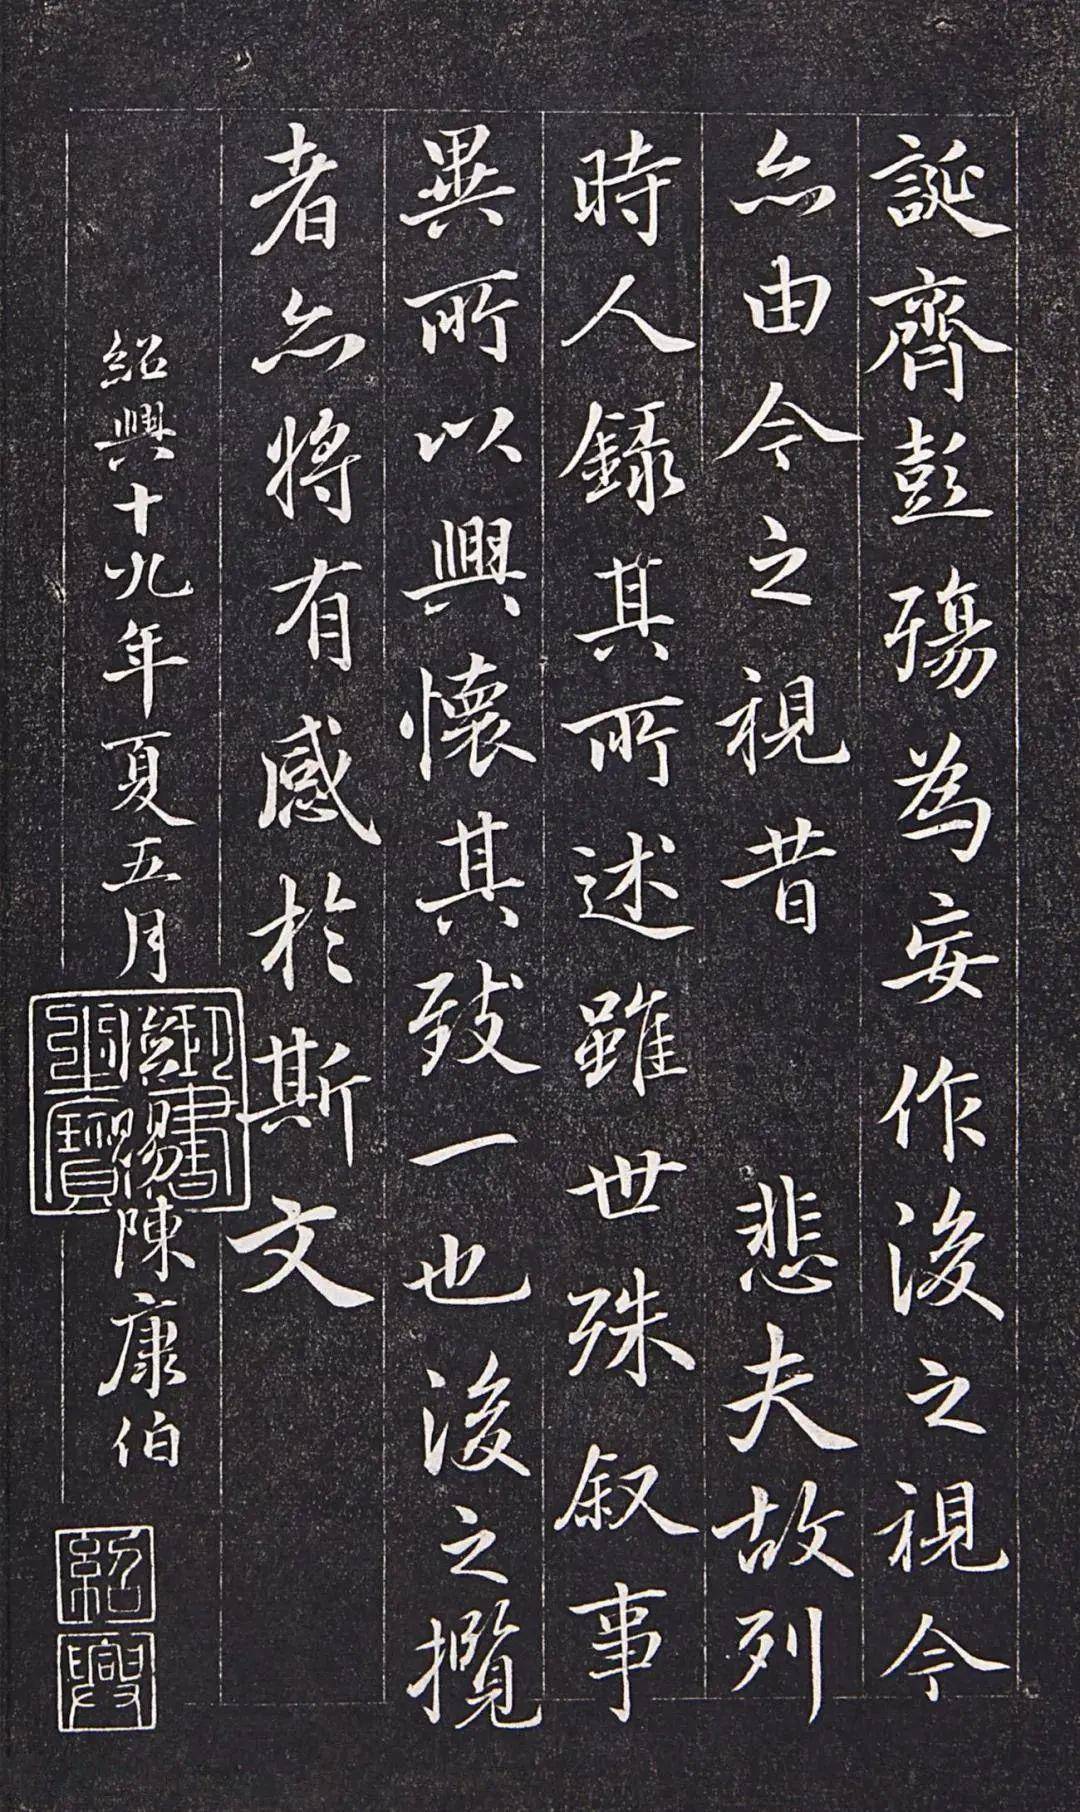 誕齊彭殤為妄作後之視今
亦由今之視昔 悲夫故列
時人錄其所述雖世殊叙事
異所以興懷其致一也後之攬
者亦將有感於斯文
紹興十九年夏五月臨賜陳康伯
御書之寶
紹
興